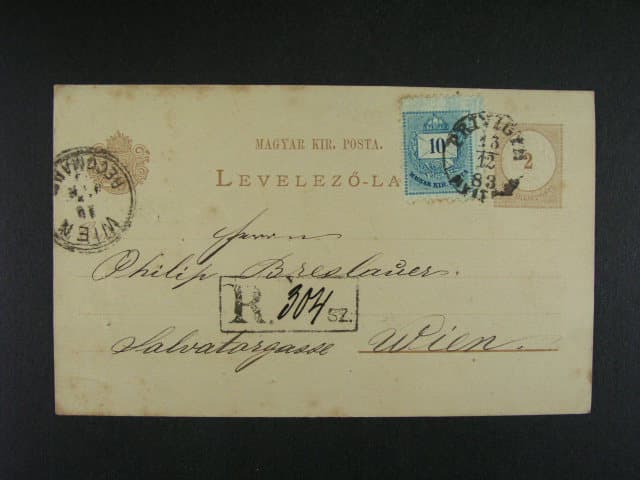 MAGYAR KIR. POSTA.
LEVELEZŐ-LA
10
MAGYAR KIR.
PRIVIGYE
13
12
83
2
WIEN
RECOMM
Herrn
Philip Breslauer.
R. 304 SZ.
Salvatorgasse Wien.